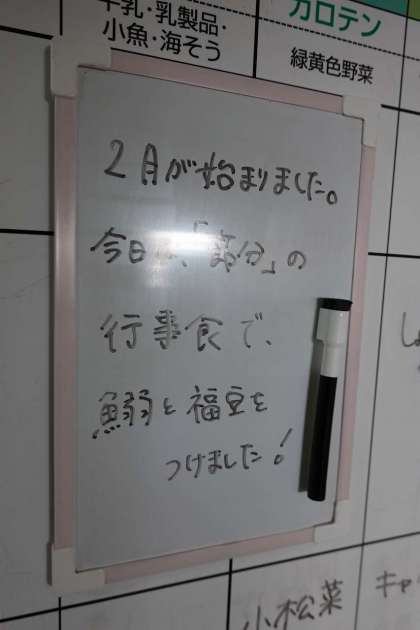 牛乳・乳製品・
小魚・海そう
カロテン
緑黄色野菜
2月が始まりました。
今日は、「節分」の
行事食で、
鰯と福豆を
つけました!
小松菜
キャ